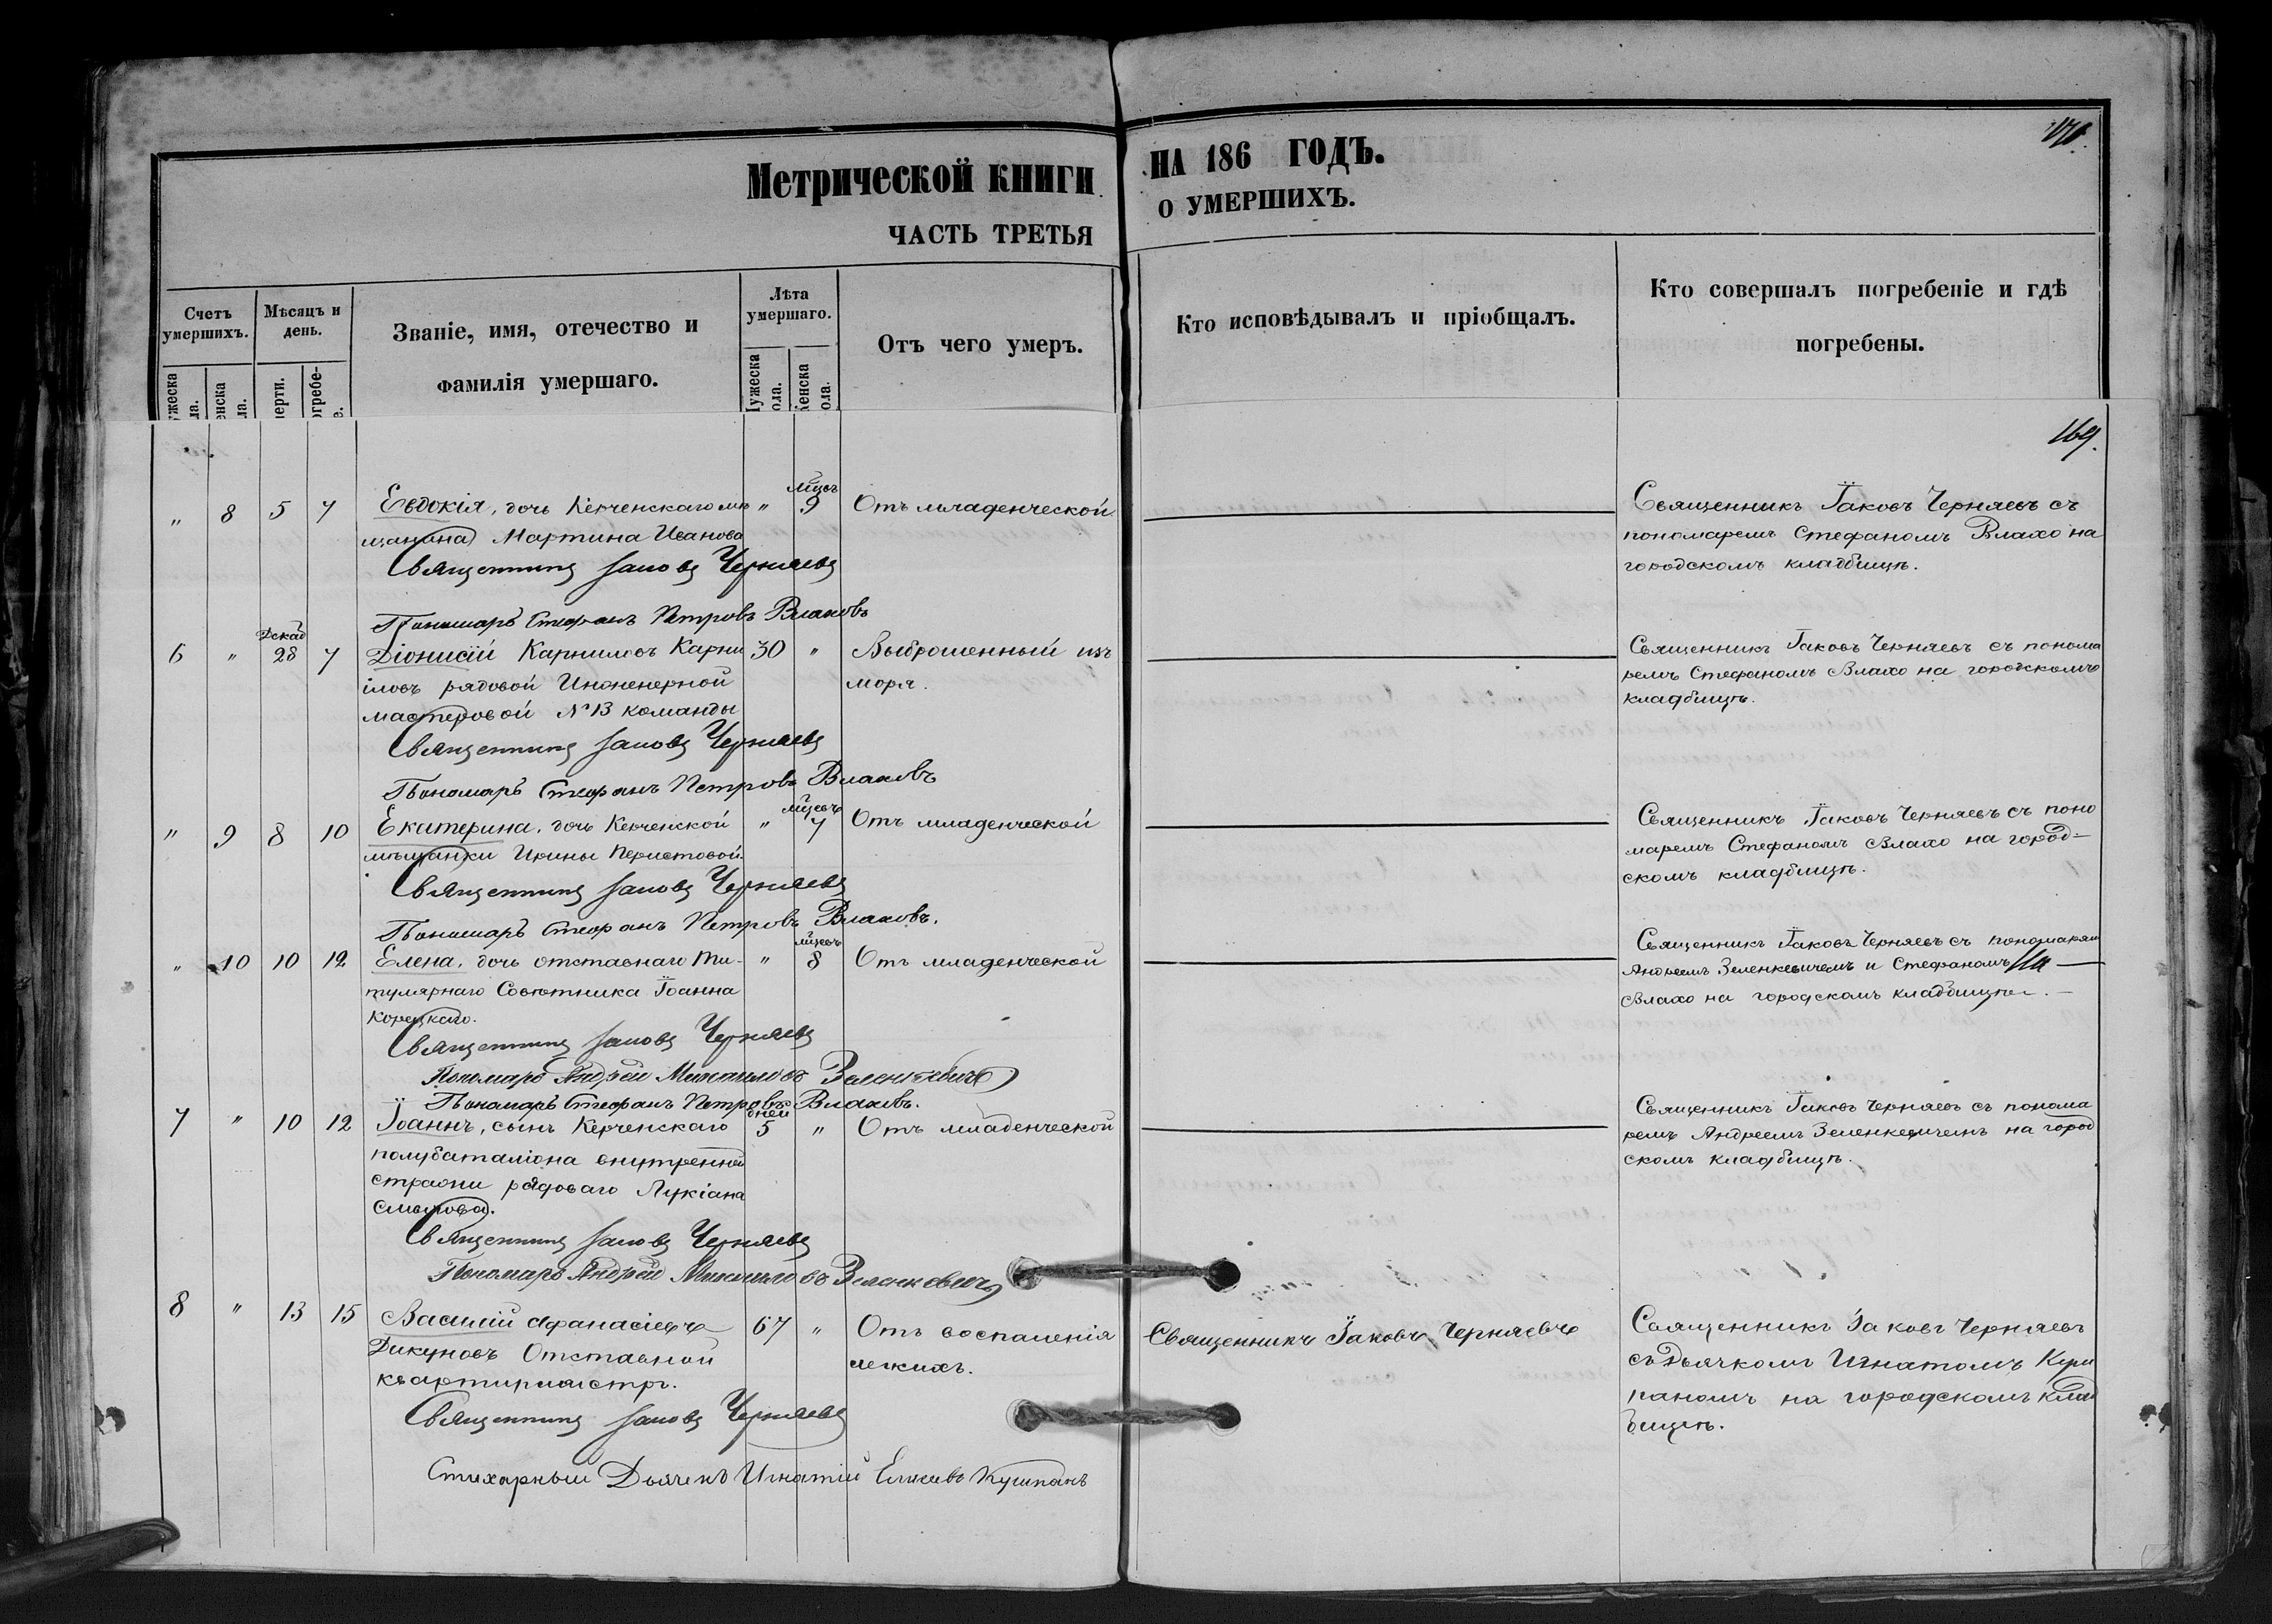 171.
Метрической книги НА 186 ГОДЪ.
ЧАСТЬ ТРЕТЬЯ О УМЕРШИХЪ.
Счетъ умершихъ.
Мѣсяцъ и день.
Званіе, имя, отечество и
фамилія умершаго.
Лѣта умершаго.
Отъ чего умеръ.
Кто исповѣдывалъ и пріобщалъ.
Кто совершалъ погребеніе и гдѣ
погребены.
169.
" 8 5 7 Евдокія, дочь Керченскаго мѣ " мцовъ 9 Отъ младенческой
щанина Мартина Иванова
Священникъ Іаковъ Черняевъ
Пономарь Стефанъ Петровъ Влаховъ
Священникъ Іаковъ Черняевъ съ
пономаремъ Стефаномъ Влахо на
городскомъ кладбищѣ.
6 " Декаб 28 7 Діонисій Карниловъ Карни 30 " Выброшенный изъ
иловъ рядовой Инженерной моря.
мастеровой №13 команды
Священникъ Іаковъ Черняевъ
Пономарь Стефанъ Петровъ Влаховъ
Священникъ Іаковъ Черняевъ съ понома
ремъ Стефаномъ Влахо на городскомъ
кладбищѣ.
" 9 8 10 Екатерина, дочь Керченской " мцевъ 7 Отъ младенческой
мѣщанки Ирины Перистовой.
Священникъ Іаковъ Черняевъ
Пономарь Стефанъ Петровъ Влаховъ.
Священникъ Іаковъ Черняевъ съ поно
маремъ Стефаномъ Влахо на город-
скомъ кладбищѣ.
" 10 10 12 Елена, дочь отставнаго Ти- " мцевъ 8 Отъ младенческой
тулярнаго Совѣтника Іоанна
Корецкаго.
Священникъ Іаковъ Черняевъ
Пономарь Андрей Михаиловъ Зеленкевичъ
Пономарь Стефанъ Петровъ Влаховъ.
Священникъ Іаковъ Черняевъ съ пономарям
Андреемъ Зеленкевичемъ и Стефаномъ
Влахо на городскомъ кладбищѣ.
7 " 10 12 Іоаннъ, сынъ Керченскаго дней 5 " Отъ младенческой
полубаталіона внутренней
стражи рядоваго Лукіана
Священникъ Іаковъ Черняевъ
Пономарь Андрей Михаиловъ Зеленкевичъ
Священникъ Іаковъ Черняевъ съ понома
ремъ Андреемъ Зеленкевичемъ на город
скомъ кладбищѣ.
8 " 13 15 Василій Афанасіевъ 67 " Отъ воспаленія
Дикуновъ Отставной легкихъ.
квартирмистръ.
Священникъ Іаковъ Черняевъ
Стихарный Дьячекъ Игнатій Кушпанъ
Священникъ Іаковъ Черняевъ
Священникъ Іаковъ Черняевъ
съ дьячкомъ Игнатомъ Куш
паномъ на городскомъ клад
бищѣ.